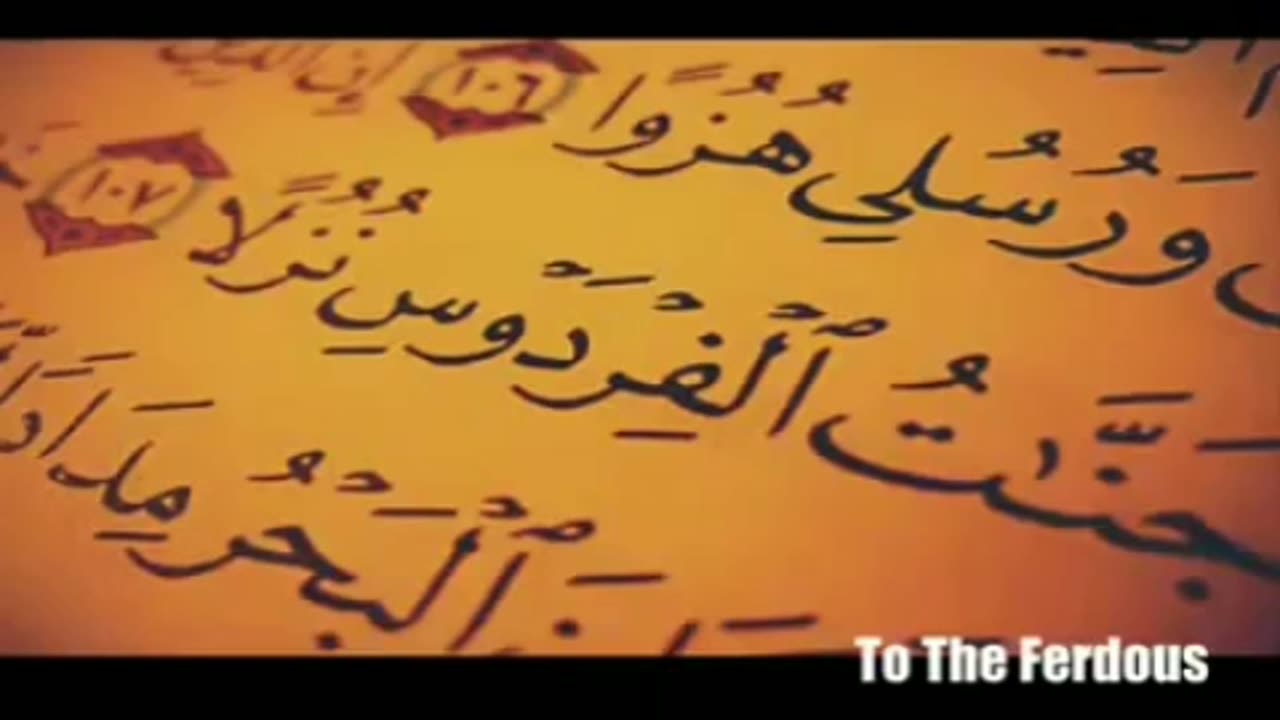 وَرُسُلِي هُزُوًا ١٠٦ إِنَّ الَّذِينَ
جَنَّٰتُ ٱلْفِرْدَوْسِ نُزُلًا ١٠٧
ٱلْبَحْرُ مِدَادًا
To The Ferdous